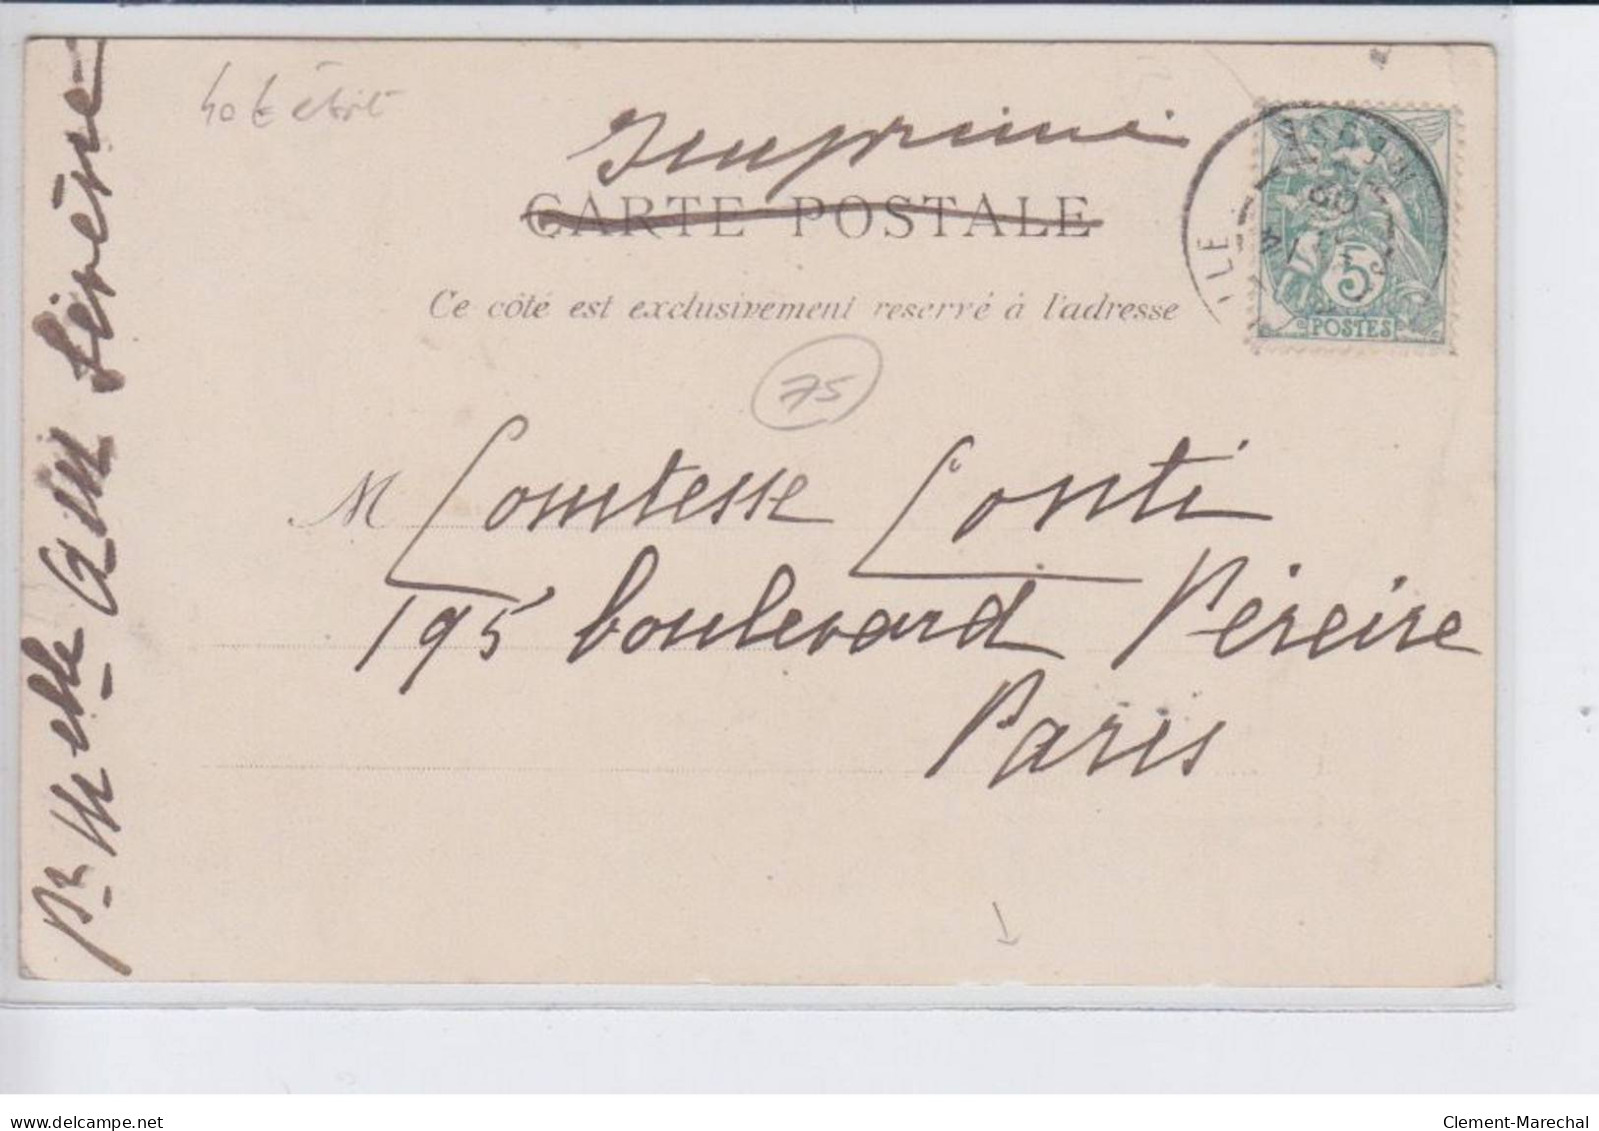 Imprimé
CARTE POSTALE
Ce côté est exclusivement reservé à l'adresse
75
5
POSTES
M Comtesse Conti
195 boulevard Péreire
Paris
delcampe.net
Clement-Marechal